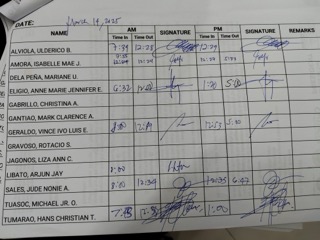 DATE: March 19, 2025
NAME AM SIGNATURE PM SIGNATURE REMARKS
Time In Time Out Time In Time Out
ALVIOLA, ULDERICO B. 7:39 12:28 12:29
AMORA, ISABELLE MAE J.
DELA PEÑA, MARIANE U.
ELIGIO, ANNE MARIE JENNIFER E. 6:32 1:20 5:00
GABRILLO, CHRISTINA A.
GANTIAO, MARK CLARENCE A.
GERALDO, VINCE IVO LUIS E. 8:00 12:49 12:53 5:30
GRAVOSO, ROTACIO S.
JAGONOS, LIZA ANN C.
LIBATO, ARJUN JAY 8:00
SALES, JUDE NONIE A. 8:00 12:34 12:35 6:42
TUASOC, MICHAEL JR. O.
TUMARAO, HANS CHRISTIAN T. 7:45 1:00